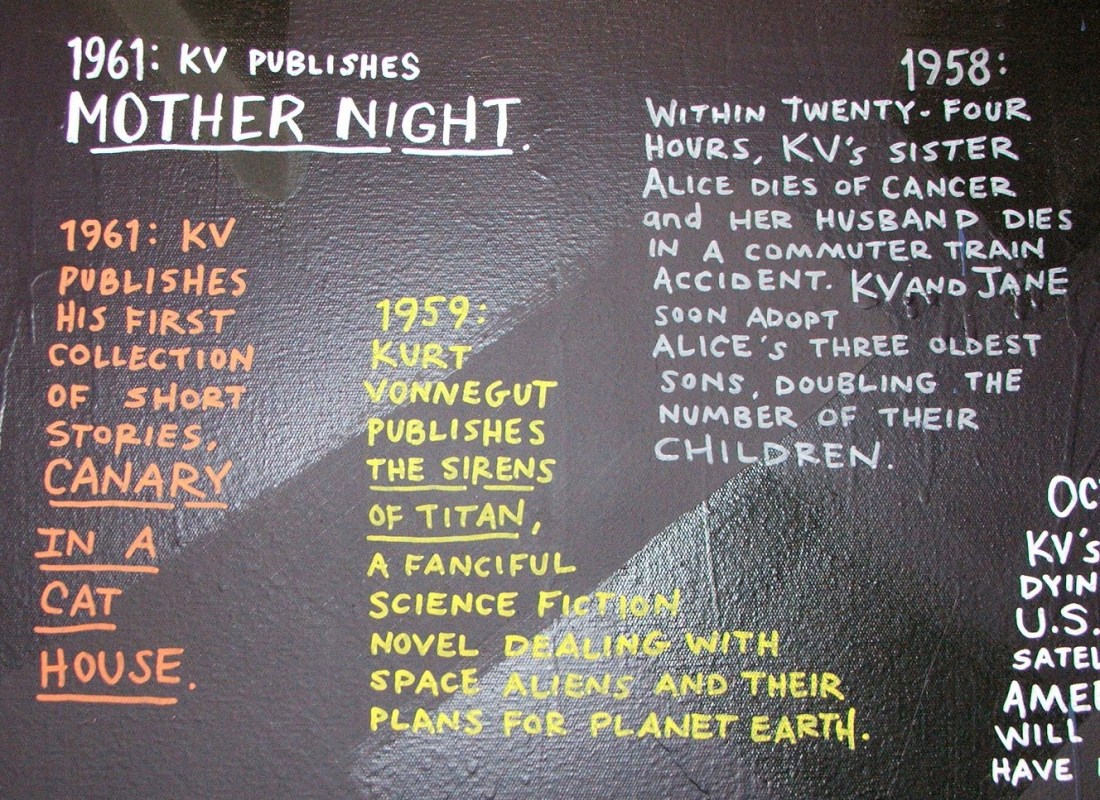 1961: KV PUBLISHES
MOTHER NIGHT.
1961: KV
PUBLISHES
HIS FIRST
COLLECTION
OF SHORT
STORIES,
CANARY
IN A
CAT
HOUSE.
1959:
KURT
VONNEGUT
PUBLISHES
THE SIRENS
OF TITAN,
A FANCIFUL
SCIENCE FICTION
NOVEL DEALING WITH
SPACE ALIENS AND THEIR
PLANS FOR PLANET EARTH.
1958:
WITHIN TWENTY-FOUR
HOURS, KV'S SISTER
ALICE DIES OF CANCER
and HER HUSBAND DIES
IN A COMMUTER TRAIN
ACCIDENT. KV AND JANE
SOON ADOPT
ALICE'S THREE OLDEST
SONS, DOUBLING THE
NUMBER OF THEIR
CHILDREN.
KV's
U.S.
WILL
HAVE